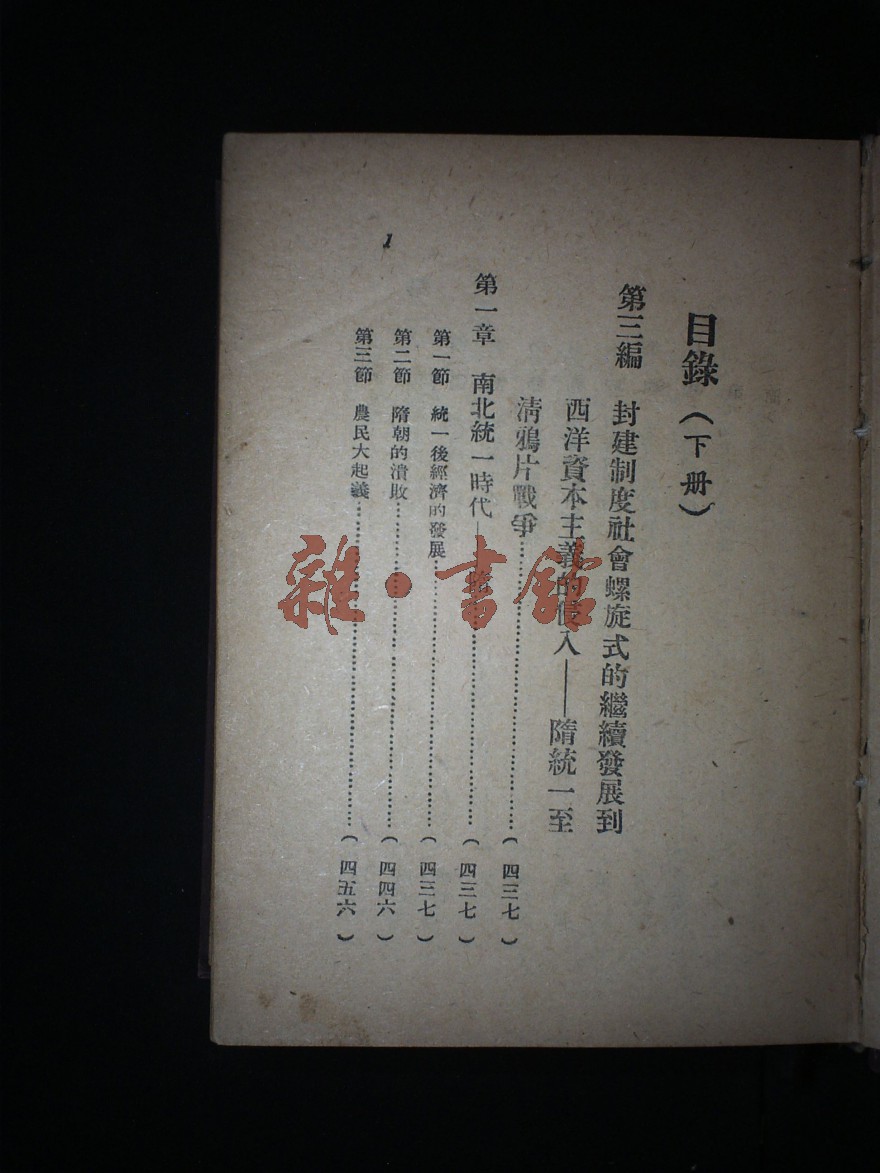 目錄（下册）
第三編　封建制度社會螺旋式的繼續發展到
西洋資本主義的侵入——隋統一至
清鴉片戰爭………………（四三七）
第一章　南北統一時代——隋………………（四三七）
第一節　統一後經濟的發展………………（四三七）
第二節　隋朝的潰敗………………（四四六）
第三節　農民大起義………………（四五六）
1
雜·書館